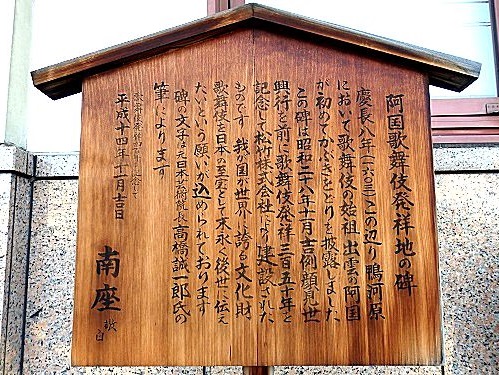 阿国歌舞伎発祥地の碑
慶長八年(一六〇三)この辺り鴨河原
において歌舞伎の始祖出雲の阿国
が初めてかぶきをどりを披露しました
この碑は昭和二八年十一月吉例顔見世
興行を前に歌舞伎発祥三百五十年を
記念して松竹株式会社により建設された
ものです 我が国が世界に誇る文化財
歌舞伎を日本の至宝として末永く後世に伝え
たいという願いが込められております
碑の文字は元日本芸術院長高橋誠一郎氏の
筆になります
平成十四年十一月吉日
南座
敬白